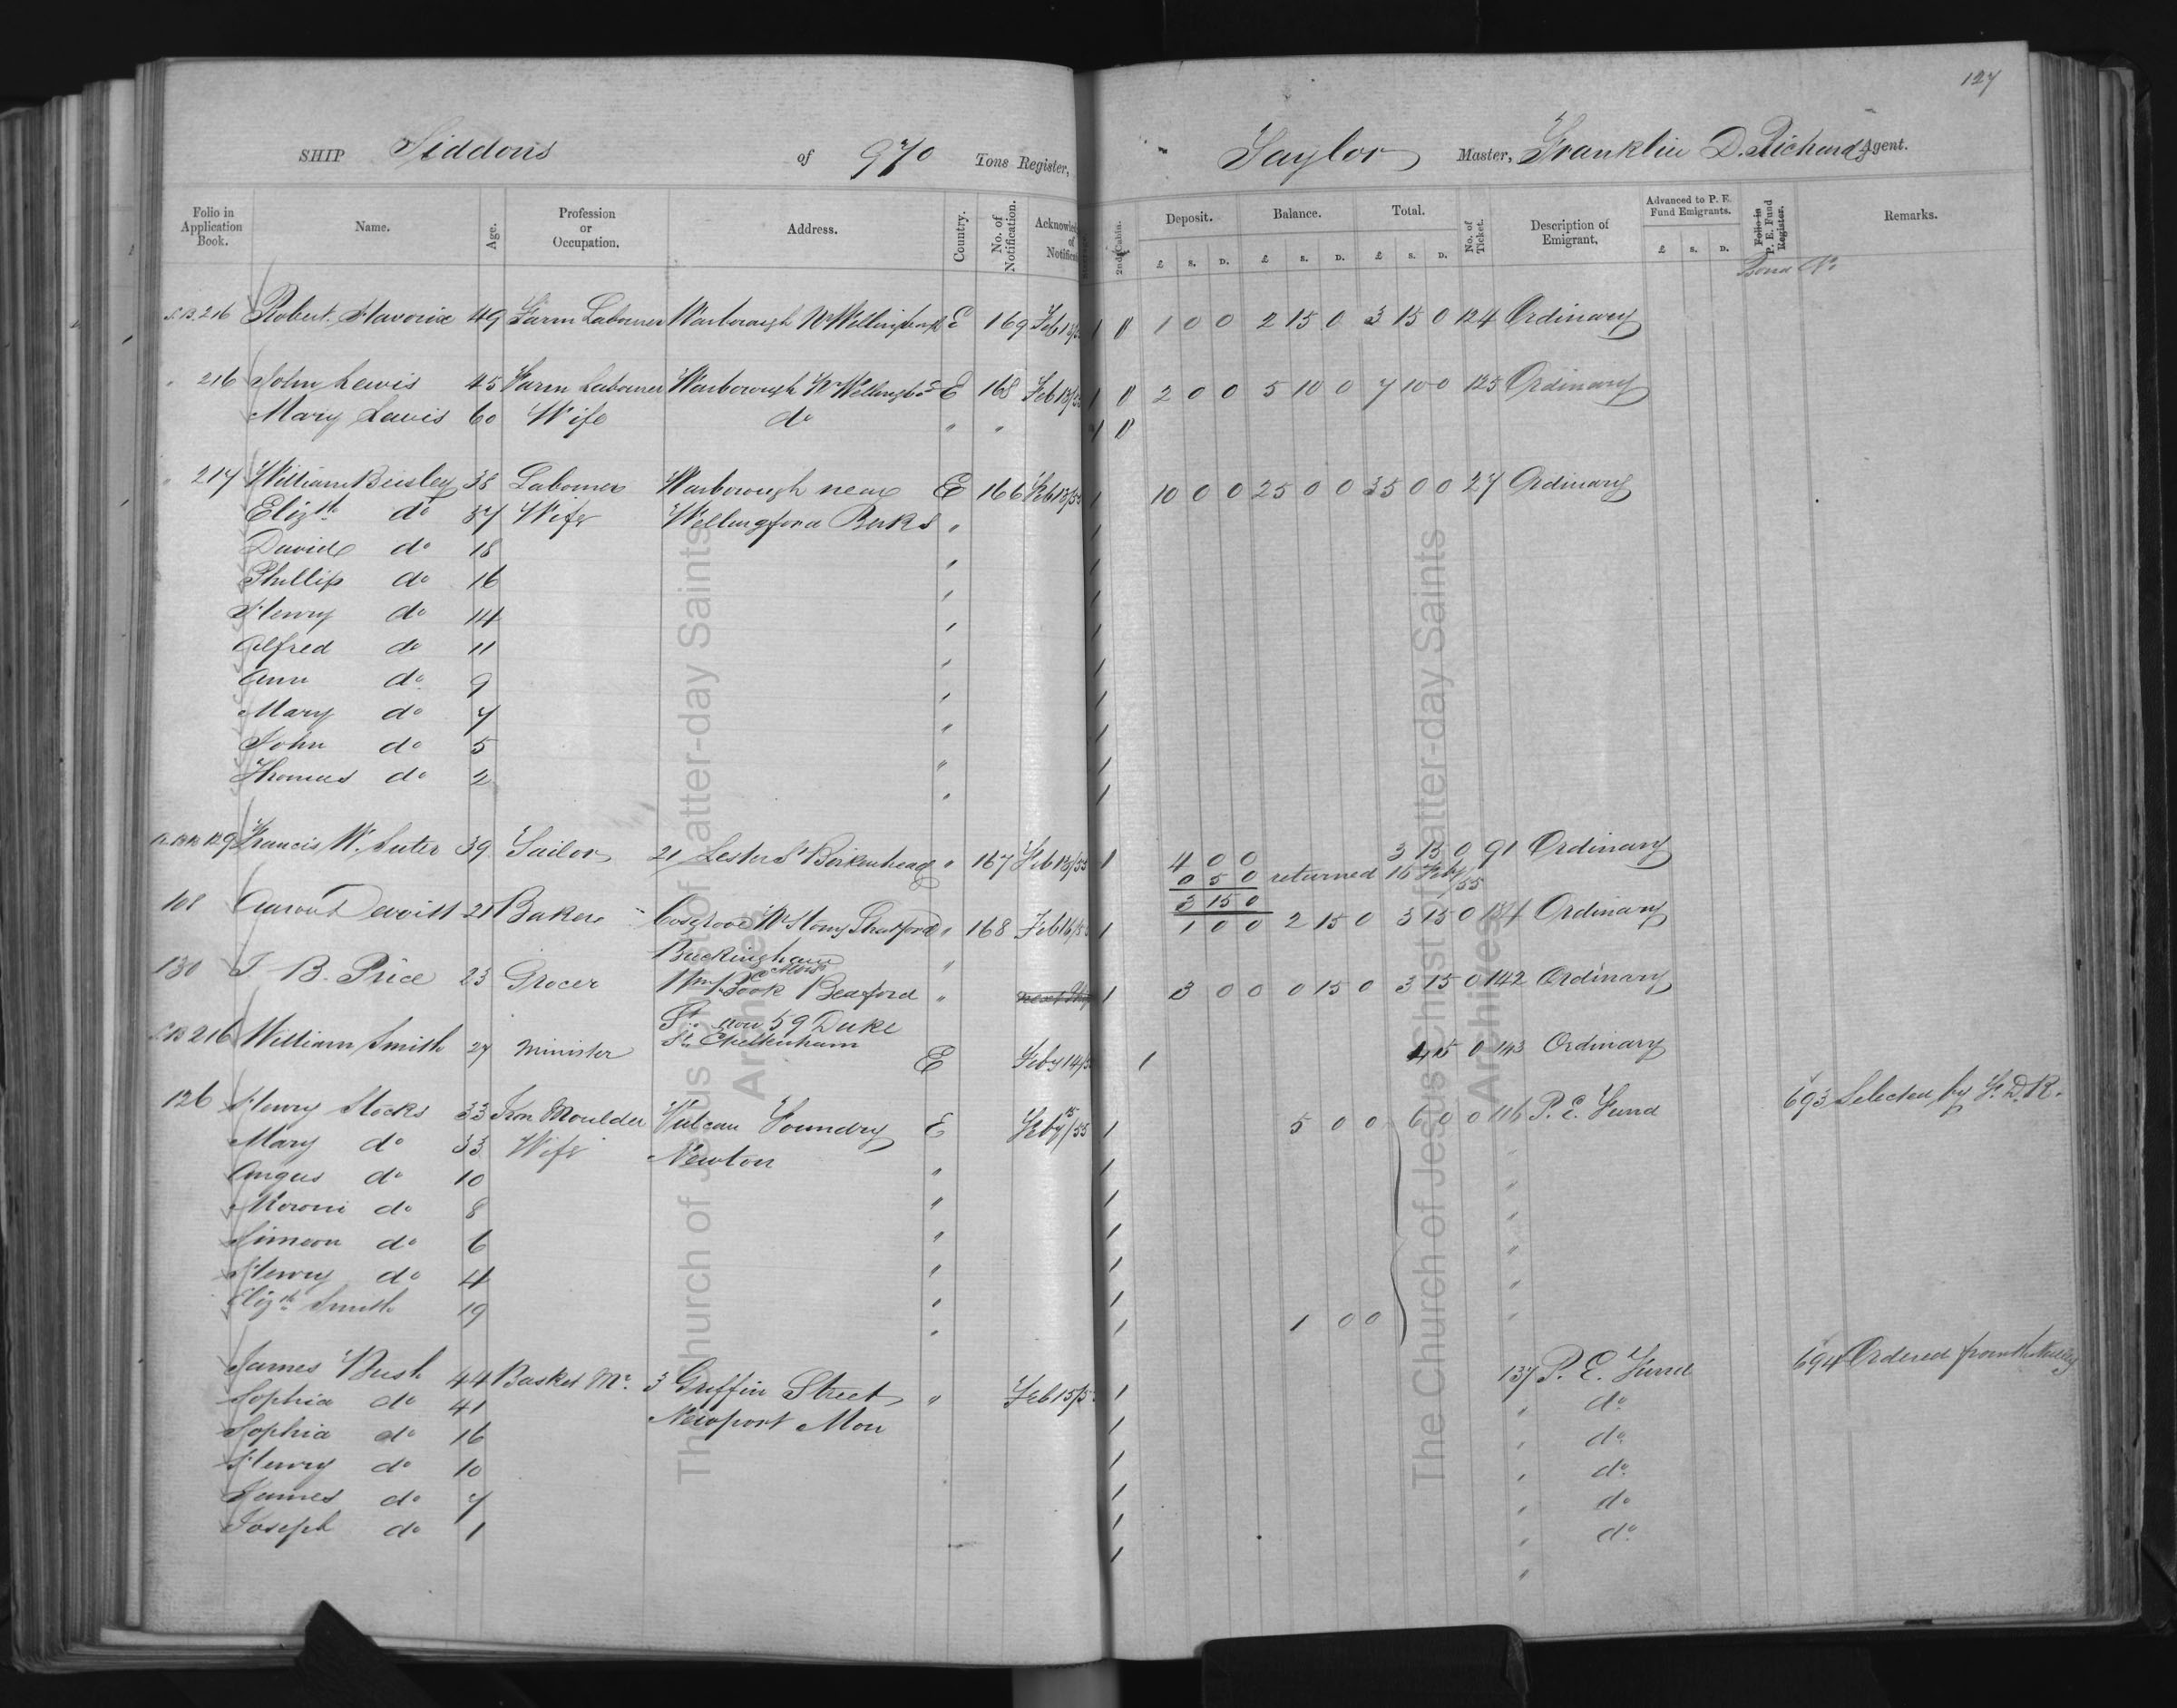 127
SHIP Siddons of 970 Tons Register, Taylor Master, Franklin D. Richards Agent.
Folio in Application Book. Name. Age. Profession or Occupation. Address. Country. No. of Notification. 2nd Cabin. Deposit. Balance. Total. No. of Ticket. Description of Emigrant. Advanced to P. E. Fund Emigrants. Folio in P. E. Fund Register. Remarks.
£ S. D. £ S. D. £ S. D. £ S. D. Bond No
216 Robert 49 Farm Labourer Warborough E 169 1 0 0 2 15 0 3 15 0 124 Ordinary
" 216 John Lewis 45 Farm Labourer Warborough E 168 Feb 13/55 2 0 0 5 10 0 7 10 0 125 Ordinary
Mary Lewis 60 Wife do " "
" 217 William Beisley 38 Labourer Warborough near E 166 Feb 13/55 1 10 0 0 25 0 0 35 0 0 27 Ordinary
Elizth do 37 Wife Wellingford Berks " 1
David do 18 " 1
Phillip do 16 " 1
Henry do 14 " 1
Alfred do 11 " 1
Ann do 9 " 1
Mary do 7 " 1
John do 5 " 1
Thomas do 2 " 1
129 Francis W. Suter 39 Sailor 21 Lester St Birkenhead " 167 Feb 13/55 1 4 0 0 3 15 0 91 Ordinary
0 5 0 returned 16 Feby/55
3 15 0
108 Devitt 21 Baker Cosgrove Nr Stony Stratford " 168 Feb 1 1 0 0 2 15 0 3 15 0 134 Ordinary
Buckingham
130 T. B. Price 23 Grocer Wm Pook Beaford " 1 3 0 0 0 15 0 3 15 0 142 Ordinary
St. now 59 Duke
St. Cheltenham
216 William Smith 27 Minister E Feby 14/55 1 4 15 0 143 Ordinary
126 Henry Stocks 33 Iron Moulder Vulcan Foundry E Feby 15/55 1 5 0 0 6 0 0 116 P. E. Fund 693 Selected by F. D. R.
Mary do 33 Wife Newton " 1 "
Angus do 10 " 1 "
Moroni do 8 " 1 "
Simeon do 6 " 1 "
Henry do 4 " 1 "
Elizth Smith 19 " 1 1 0 0 "
James Bush 44 Basket Mr. 3 Griffin Street " Feb 15/55 1 137 P. E. Fund 694 Ordered from the Valley
Sophia do 41 Newport Mon 1 " do
Sophia do 16 1 " do
Henry do 10 1 " do
James do 7 1 " do
Joseph do 1 1 " do
The Church of Jesus Christ of Latter-day Saints
Archives
The Church of Jesus Christ of Latter-day Saints
Archives